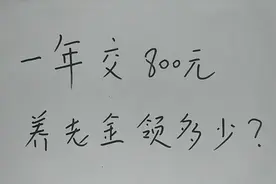 一年交800元
养老金领多少?